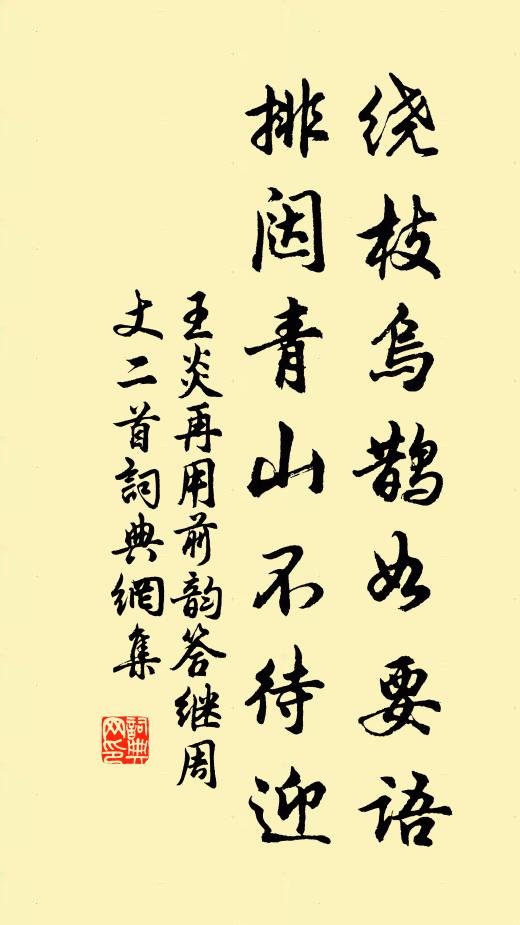 绕枝乌鹊如要语
排闼青山不待迎
王炎再用前韵答继周
丈二首詞典網集
詞典網印